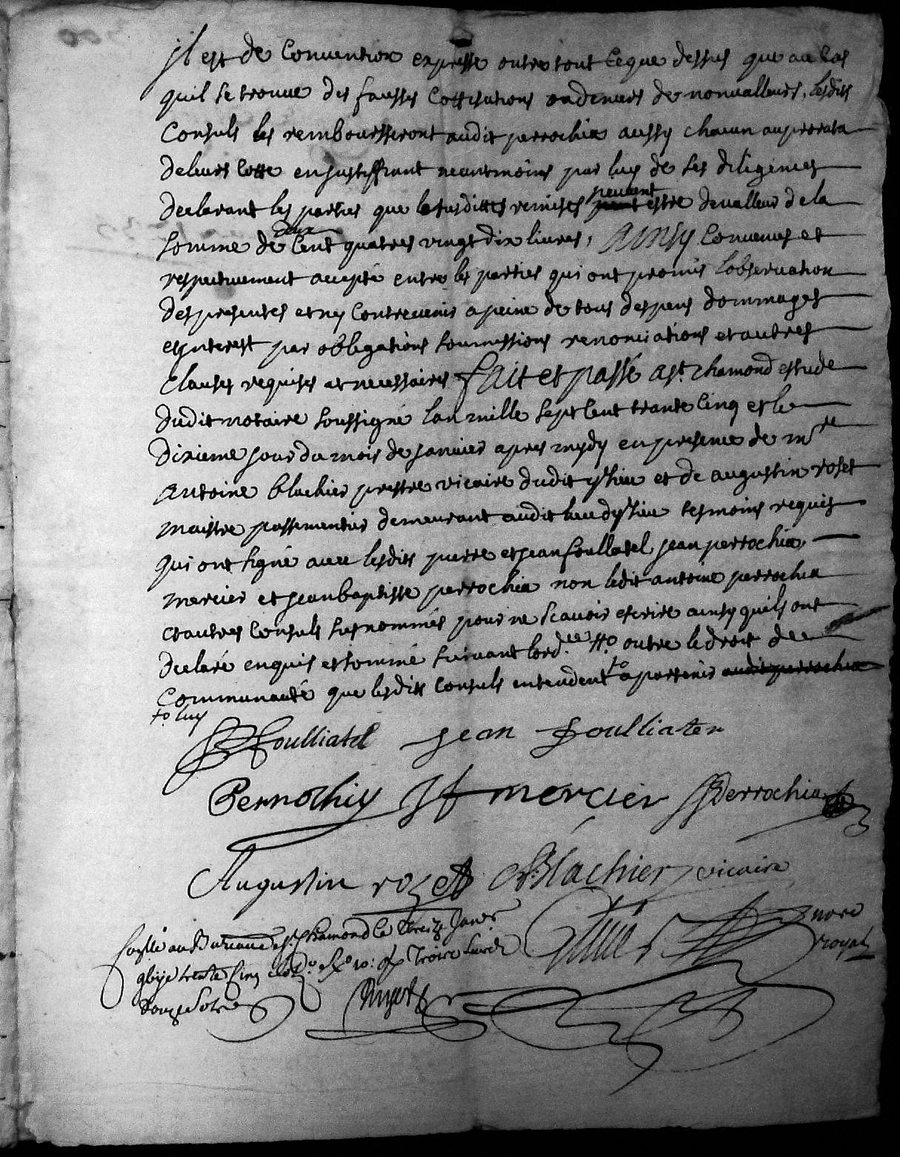 il est de Convention expresse outre tout Ceque dessus que au Cas
quil se trouve des fausses Cottisations ou deniers de nonvalleurs, lesdits
Consuls les rembourseront audit perrochia aussy chacun au prorata
deleurs Cotte en justiffiant neantmoins par luy de ses diligences
declarant les parties que lesusdittes remises peuvent estre devalleur dela
somme de deux Cent quatres vingt dix livres, Ainsy Convenu et
respectivement accepté entre les parties qui ont promis lobservation
des presentes et ny Contrevenir a peine de tous despens dommages
et interest par obligations soumissions renonciations et autres
Clauses requises et necessaires fait et passé a st. chamond estude
dudit notaire soussigné lan mille sept Cent trante Cinq et le
dixieme jour du mois de janvier apres mydy en presence de mre
Antoine blachier prestre vicaire dudit yzieu et de augustin roset
maistre passementier demeurant audit lieu dyzieu tesmoins requis
qui ont signé avec lesdits pierre et jean foullatel jean perrochia,
mercier et jean baptisse perrochia non ledit antoine perrochia
et autres Consuls susnommés pour ne scavoir escrire ainsy quils ont
declaré enquis et sommé suivant lordce. outre le droit de
Communauté que lesdits Consuls entendent to apartenir audit perrochia
to luy
foulliatel jean foulliaten
Perrochiy mercier perrochia
Augustin rozet Blachier vicaire
nore
royal
st. Chamond le treize Janer
trente Cinq
douze sols